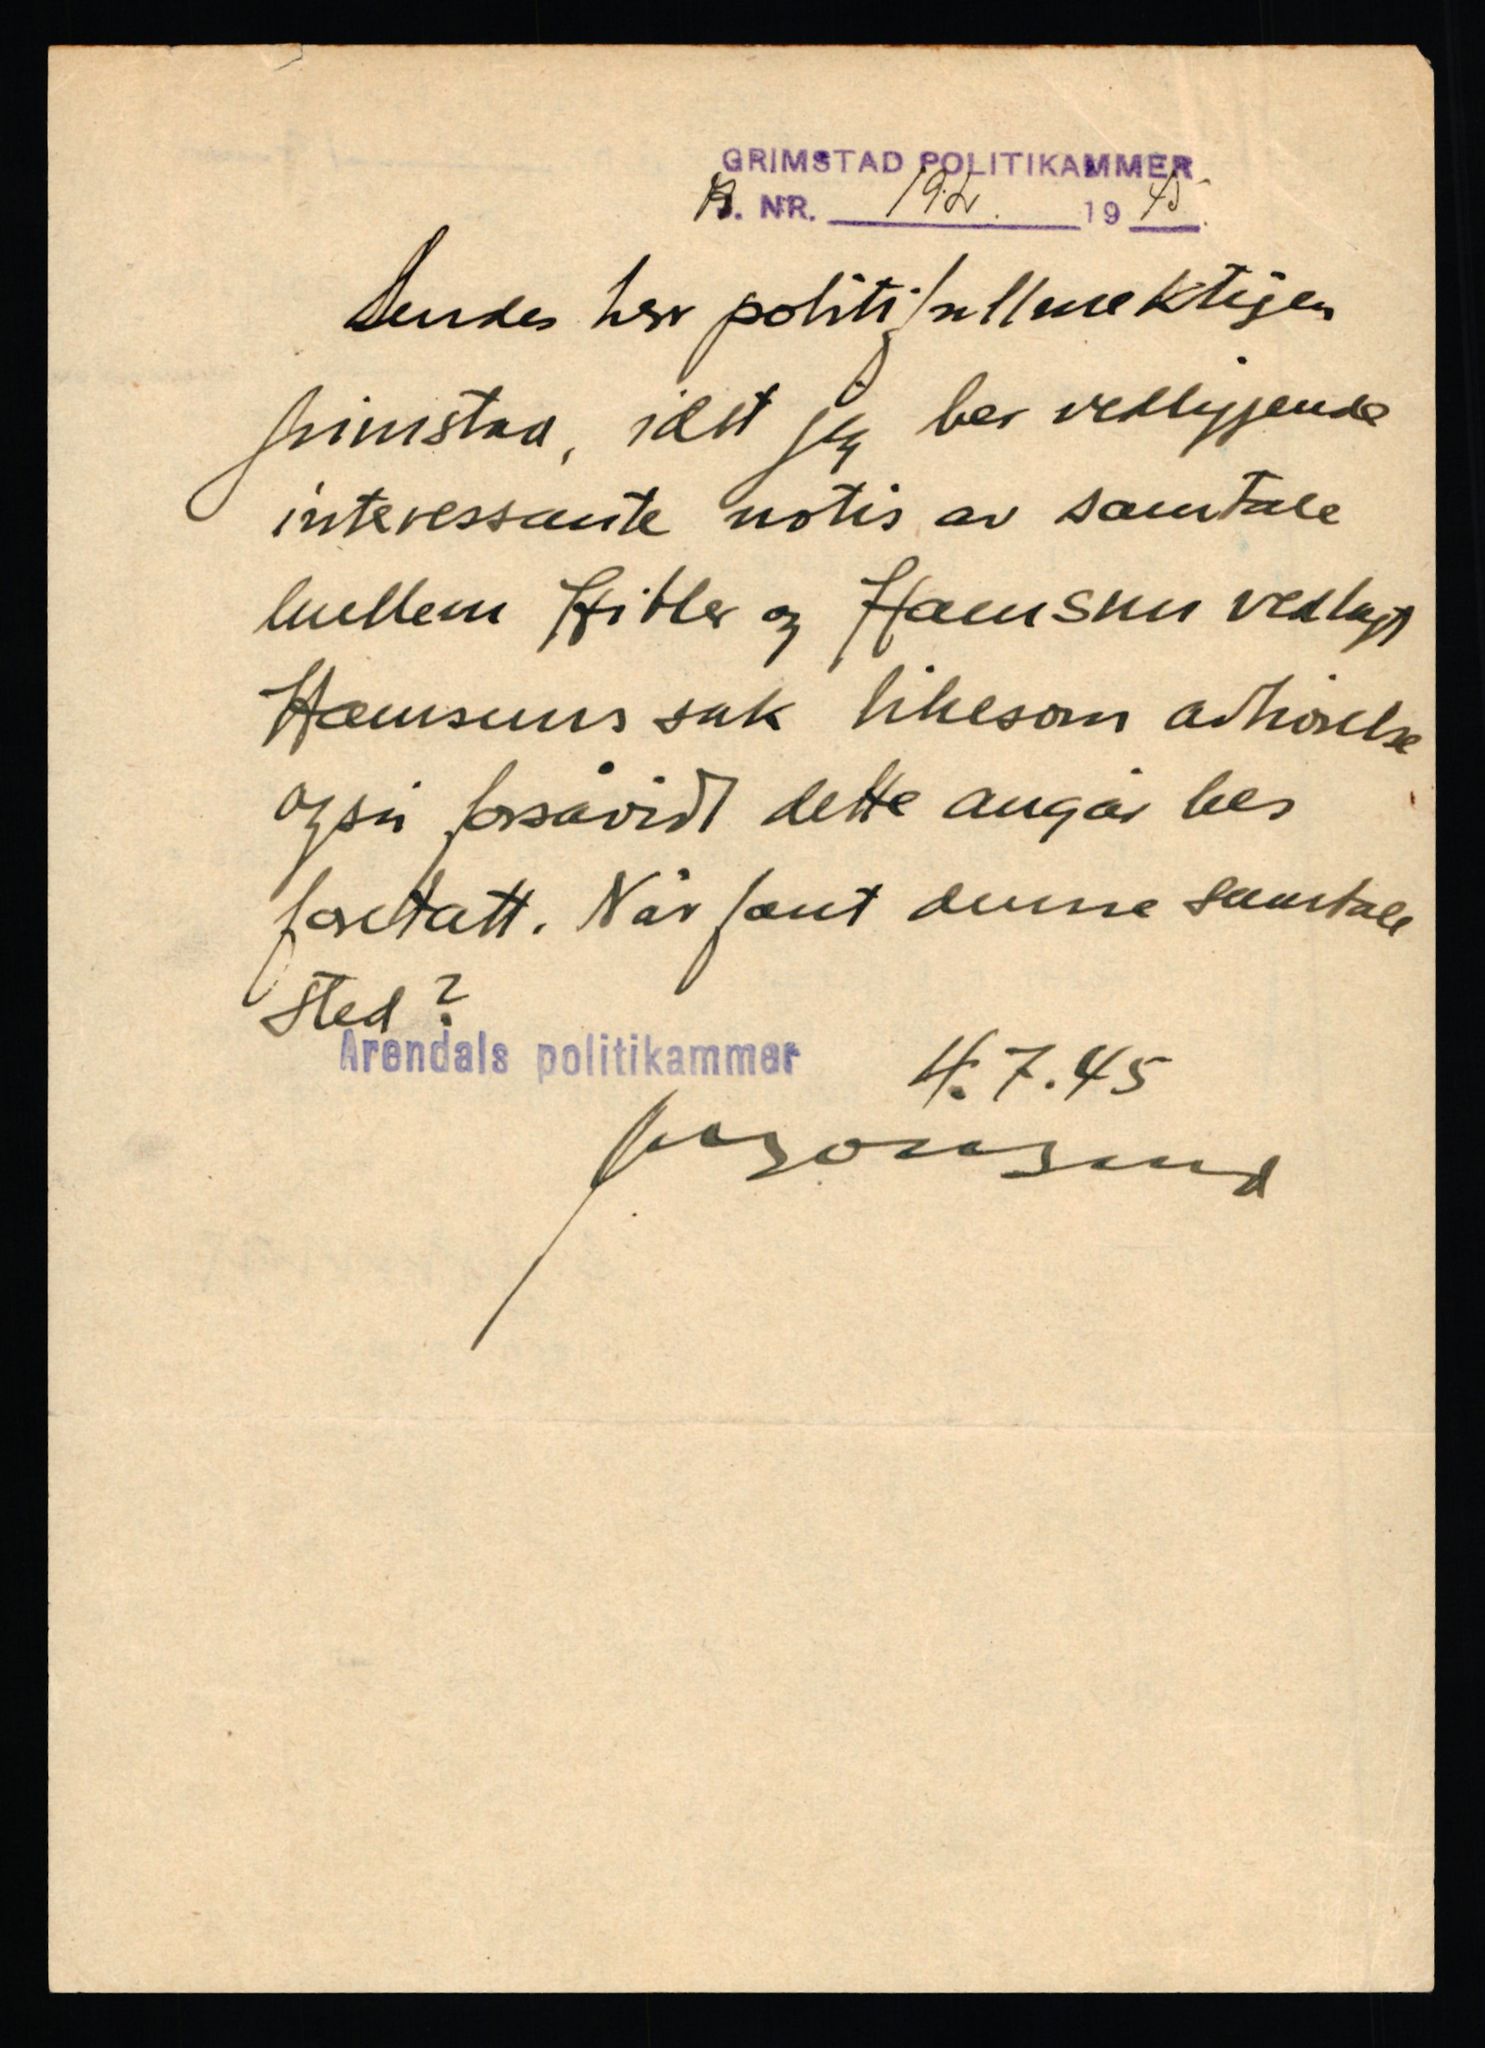 GRIMSTAD POLITIKAMMER
B. NR. 192. 1945.
Sendes herr politifullmektigen
Grimstad, idet jeg ber vedliggende
interessante notis av samtale
mellem Hitler og Hamsun vedlagt
Hamsuns sak likesom avhørelse
også forsåvidt dette angår bes
foretatt. Når fant denne samtale
sted?
Arendals politikammer 4.7.45